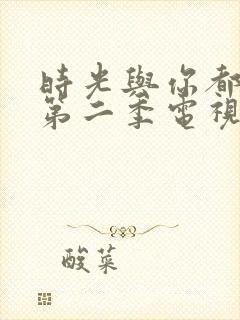 時光與你都
第二季電視
酸菜